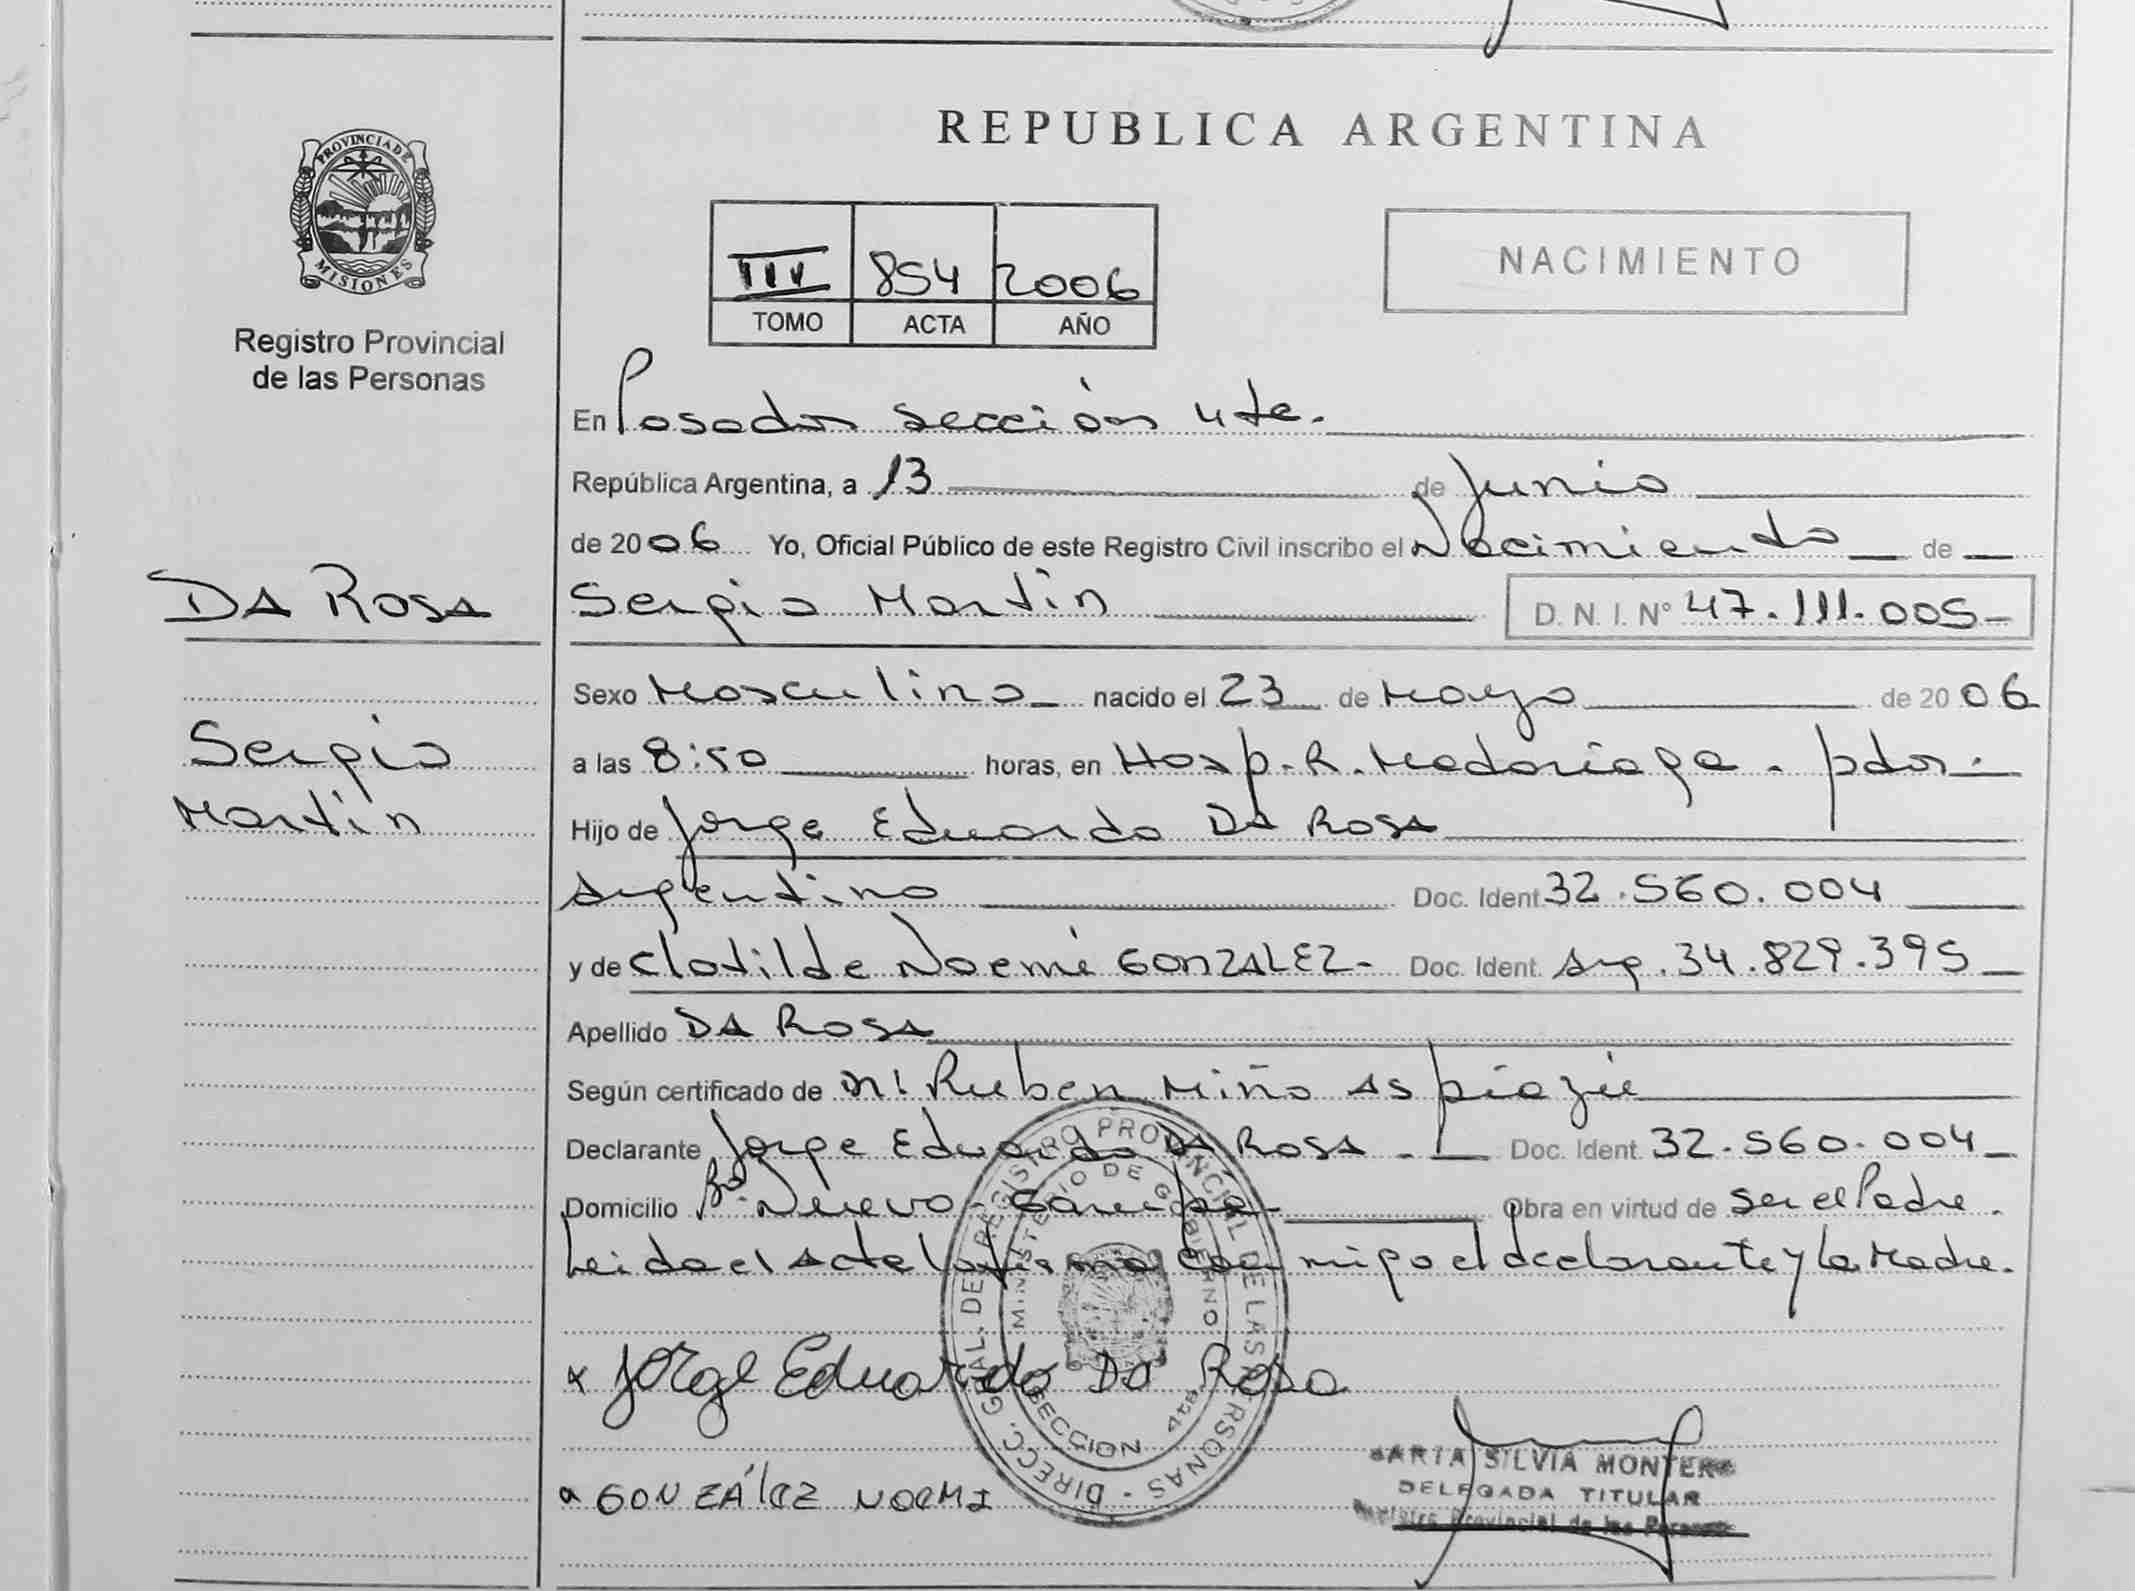 PROVINCIA DE
MISIONES
Registro Provincial
de las Personas
DA ROSA
Sergio
Martín
REPUBLICA ARGENTINA
III 854 2006
TOMO ACTA AÑO
NACIMIENTO
En Posadas sección 4ta.
República Argentina, a 13 de Junio
de 2006 Yo, Oficial Público de este Registro Civil inscribo el Nacimiento de
Sergio Martín D. N. I. Nº 47.111.005-
Sexo Masculino nacido el 23 de Mayo de 2006
a las 8:50 horas, en Hosp. R. Madariaga - pdas.
Hijo de Jorge Eduardo DA ROSA
Argentino Doc. Ident. 32.560.004
y de Clotilde Noemí GONZALEZ- Doc. Ident. Arg. 34.829.395
Apellido DA ROSA
Según certificado de Ruben Miño Aspiazú
Declarante Jorge Eduardo DA ROSA - Doc. Ident. 32.560.004
Domicilio Bº Nuevo - Garupá - Obra en virtud de ser el Padre.
Leida el Acta la firma con migo el declarante y la Madre.
x Jorge Eduardo Da Rosa
GONZÁlEZ NOEMI
DIRECC. GRAL. DEL REGISTRO PROVINCIAL DE LAS PERSONAS -
MINISTERIO DE GOBIERNO
SECCION 4ta
MARIA SILVIA MONTERO
DELEGADA TITULAR
Registro Provincial de las Personas